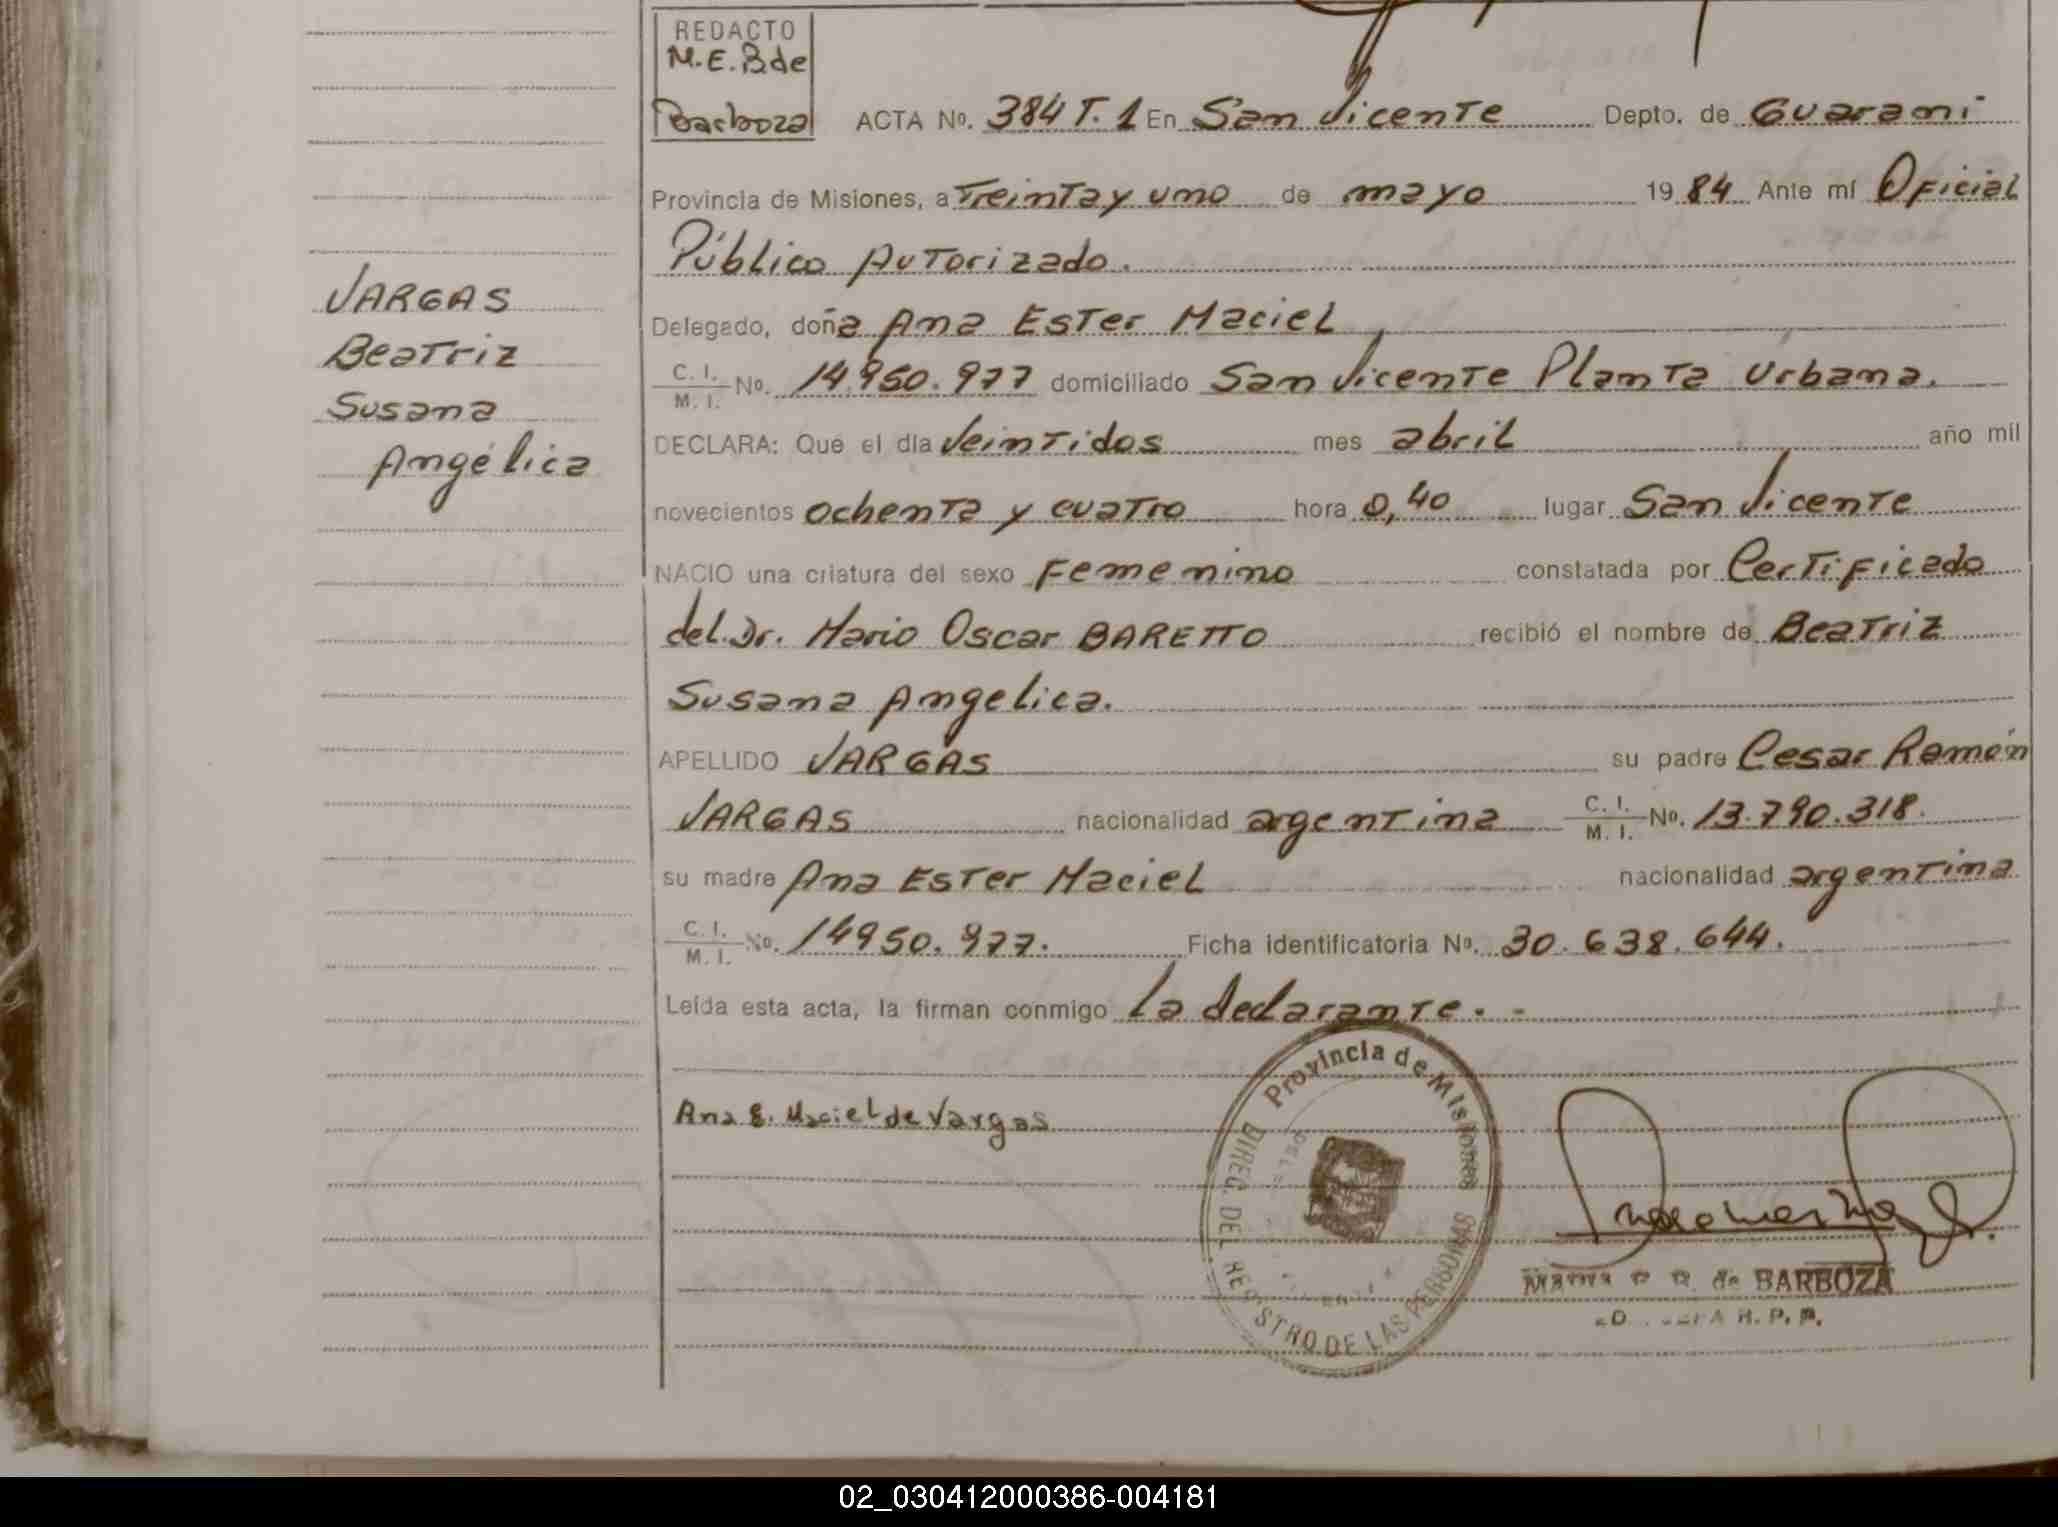 REDACTO
M.E.B de
Barboza
ACTA No. 384 T. 1 En San Vicente Depto. de Guaraní
Provincia de Misiones, a Treinta y uno de mayo 1984 Ante mí Oficial
Público Autorizado.
Delegado, doña Ana Ester Maciel
C. I.
M. I. No. 14.950.977 domiciliado San Vicente Planta Urbana.
DECLARA: Que el día Veintidos mes abril año mil
novecientos ochenta y cuatro hora 0,40 lugar San Vicente
NACIO una criatura del sexo Femenino constatada por Certificado
del Dr. Mario Oscar BARETTO recibió el nombre de Beatriz
Susana Angelica.
APELLIDO VARGAS su padre Cesar Ramón
VARGAS nacionalidad argentina C. I.
M. I. No. 13.790.318.
su madre Ana Ester Maciel nacionalidad argentina
C. I.
M. I. No. 14950.977. Ficha identificatoria No. 30.638.644.
Leída esta acta, la firman conmigo la declarante. -
Ana E. Maciel de Vargas
VARGAS
Beatriz
Susana
Angélica
Provincia de Misiones
DIREC. DEL REGISTRO DE LAS PERSONAS
de BARBOZA
R. P. P.
02_030412000386-004181